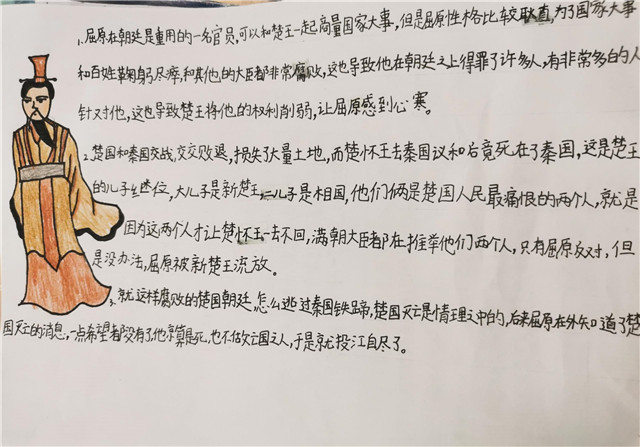 1.屈原在朝廷是重用的一名官员,可以和楚王一起商量国家大事,但是屈原性格比较耿直,为了国家大事
和百姓鞠躬尽瘁,和其他的大臣都非常腐败,这也导致他在朝廷之上得罪了许多人,有非常多的人
针对他,这也导致楚王将他的权利削弱,让屈原感到心寒。
2.楚国和秦国交战,交交败退,损失了大量土地,而楚怀王去秦国议和后竟死在了秦国,这是楚王
的儿子继位,大儿子是新楚王二儿子是相国,他们俩是楚国人民最痛恨的两个人,就是
因为这两个人才让楚怀王一去不回,满朝大臣都在推举他们两个人,只有屈原反对,但
是没办法,屈原被新楚王流放。
3.就这样腐败的楚国朝廷,怎么逃过秦国铁蹄,楚国灭亡是情理之中的,后来屈原在外知道了楚
国灭亡的消息,一点希望都没有了,他宁算是死,也不做亡国之人,于是就投江自尽了。